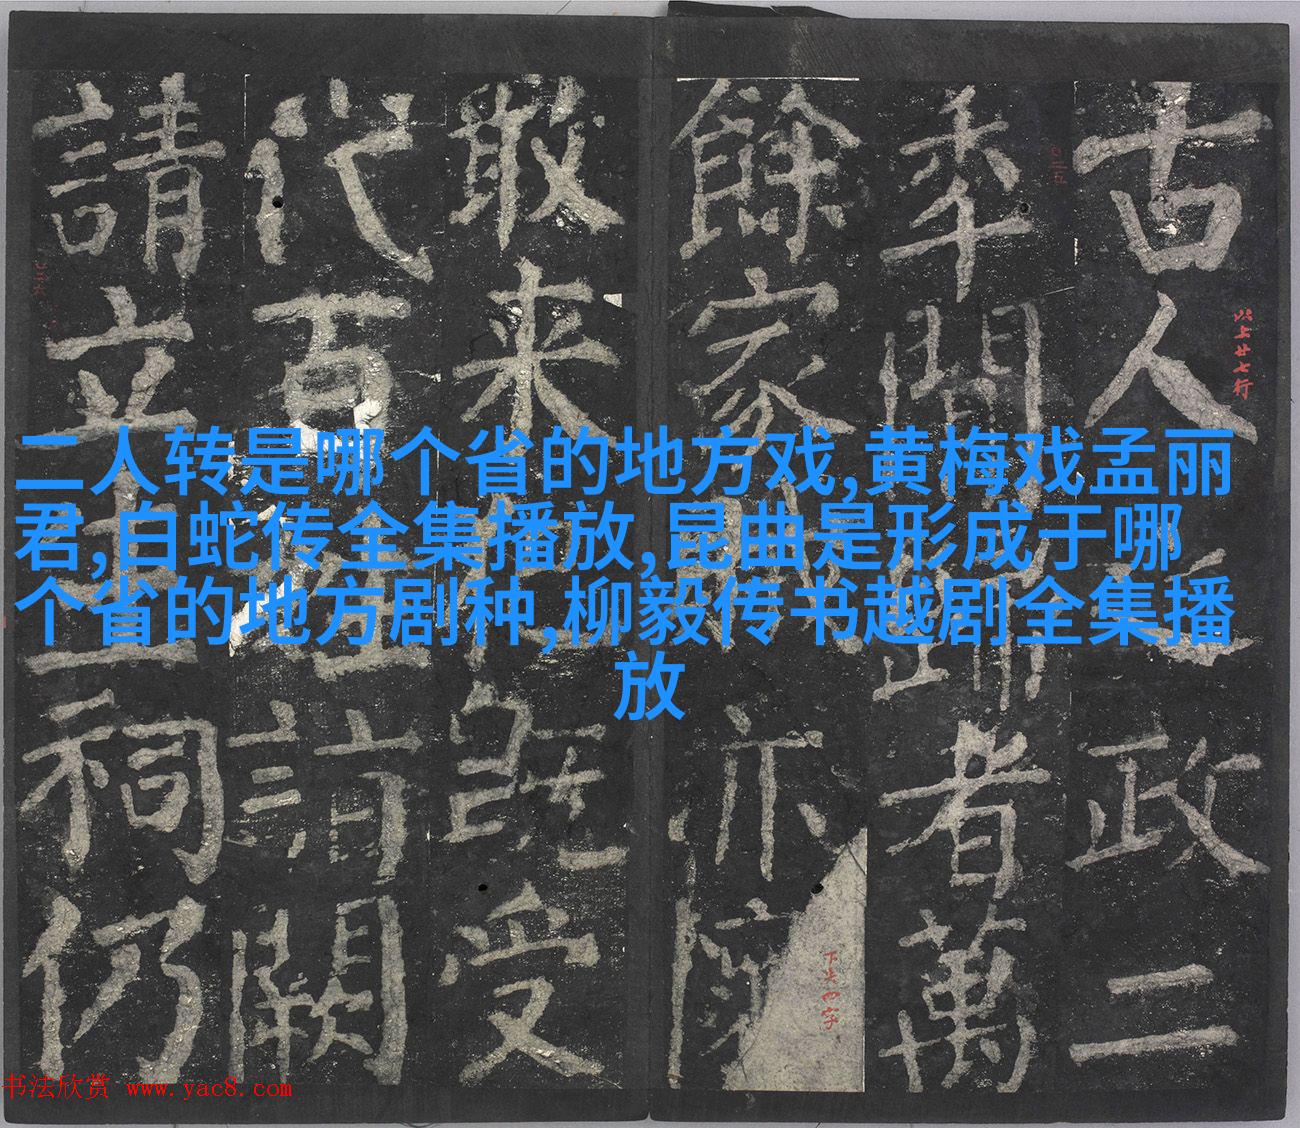 古人政二
秊開歸者萬
餘家亦
敢来既受
代百姓請闕
請立生祠仍
以上廿七行
二人转是哪个省的地方戏,黄梅戏孟丽
君,白蛇传全集播放,昆曲是形成于哪
个省的地方剧种,柳毅传书越剧全集播
放
书法欣赏 www.yac8.com